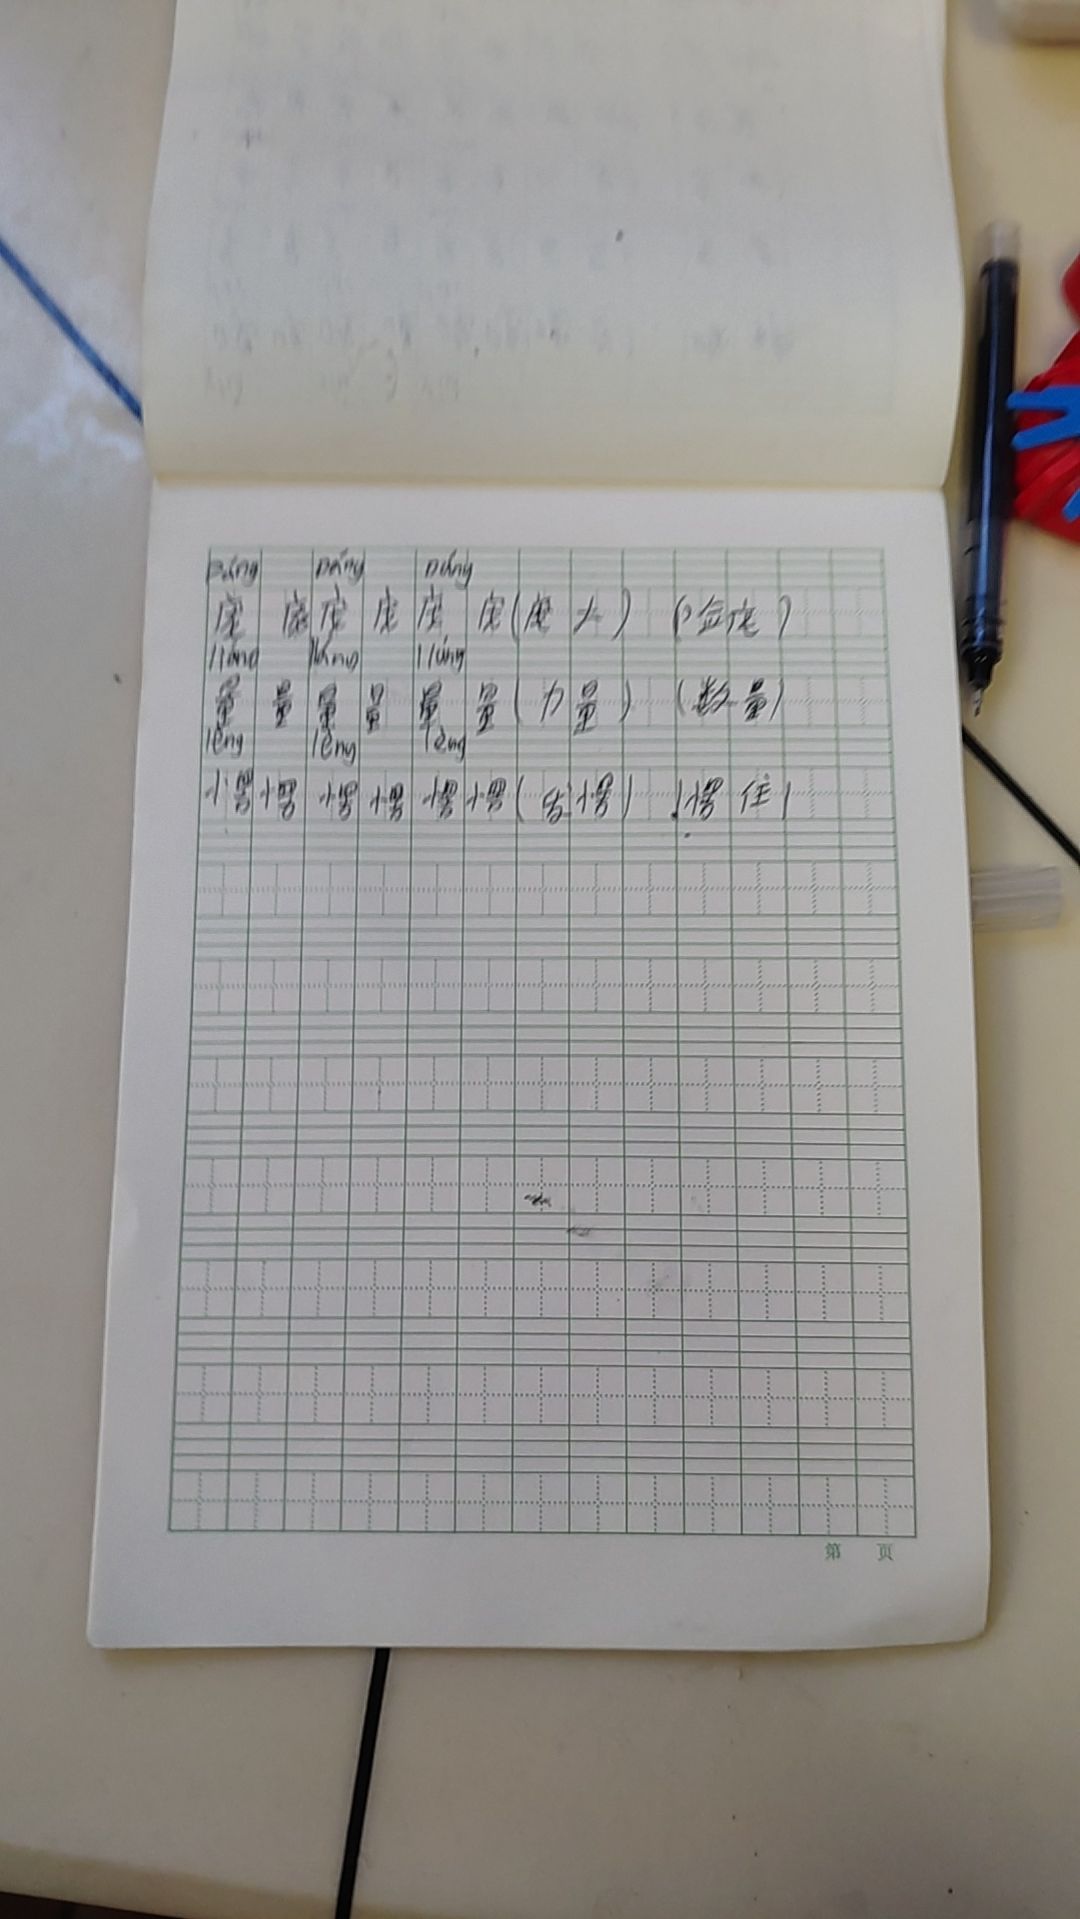 páng páng páng
庞 庞 庞 庞 庞 庞 (庞大) (脸庞)
liàng liàng liàng
量 量 量 量 量 量 (力量) (数量)
lèng lèng lèng
愣 愣 愣 愣 愣 愣 (发愣) (愣住)
第 页